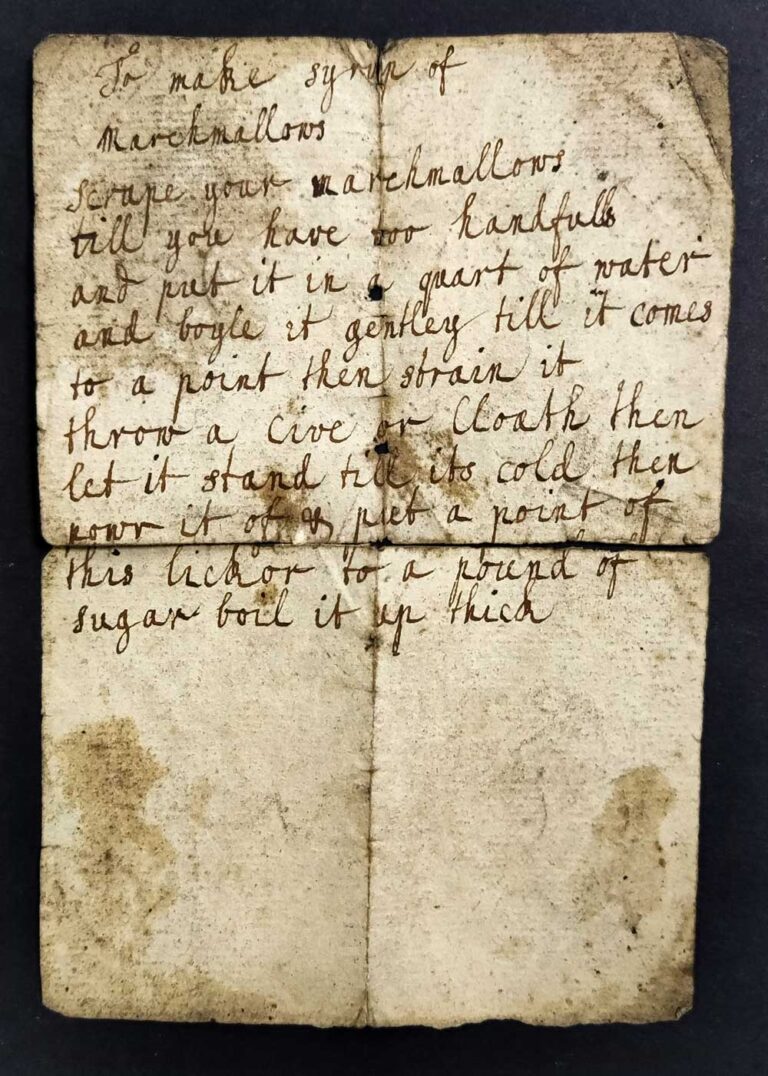 To make syrup of
Marchmallows
scrape your marchmallows
till you have too handfulls
and put it in a quart of water
and boyle it gentley till it comes
to a point then strain it
throw a Cive or Cloath then
let it stand till its cold then
powr it of & put a point of
this lickor to a pound of
sugar boil it up thick